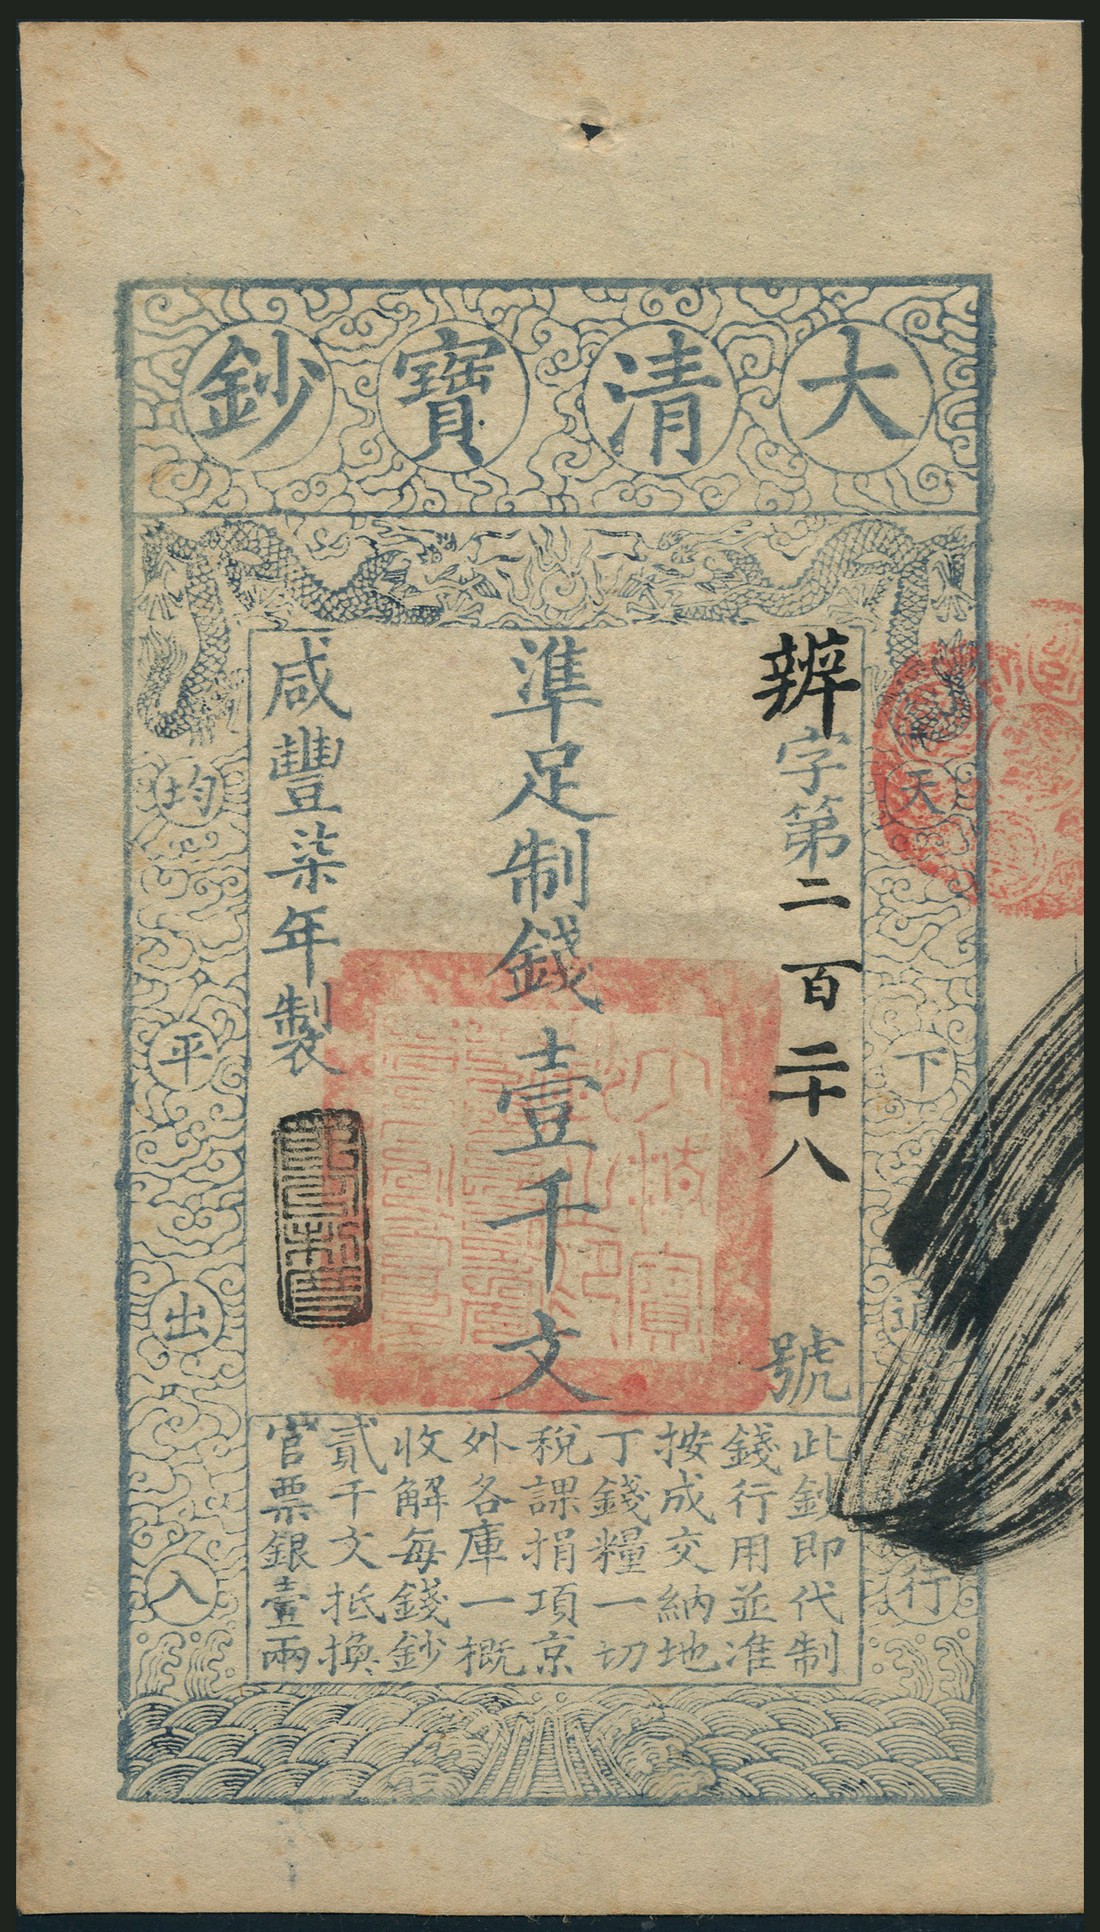 大清寶鈔
天下通行
均平出入
辨字第二百二十八號
準足制錢壹千文
咸豐柒年製
此鈔即代制
錢行用並准
按成交納地
丁錢糧一切
稅課捐項京
外各庫一概
收解每錢鈔
貳千文抵換
官票銀壹兩